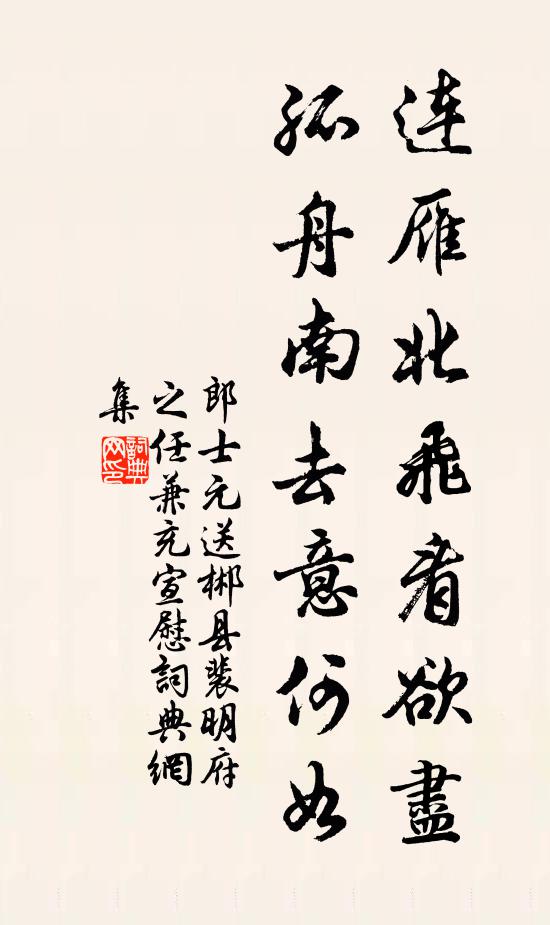 連雁北飛看欲盡
孤舟南去意何如
郎士元送郴县裴明府
之任兼充宣慰詞典網
集
詞典
网印